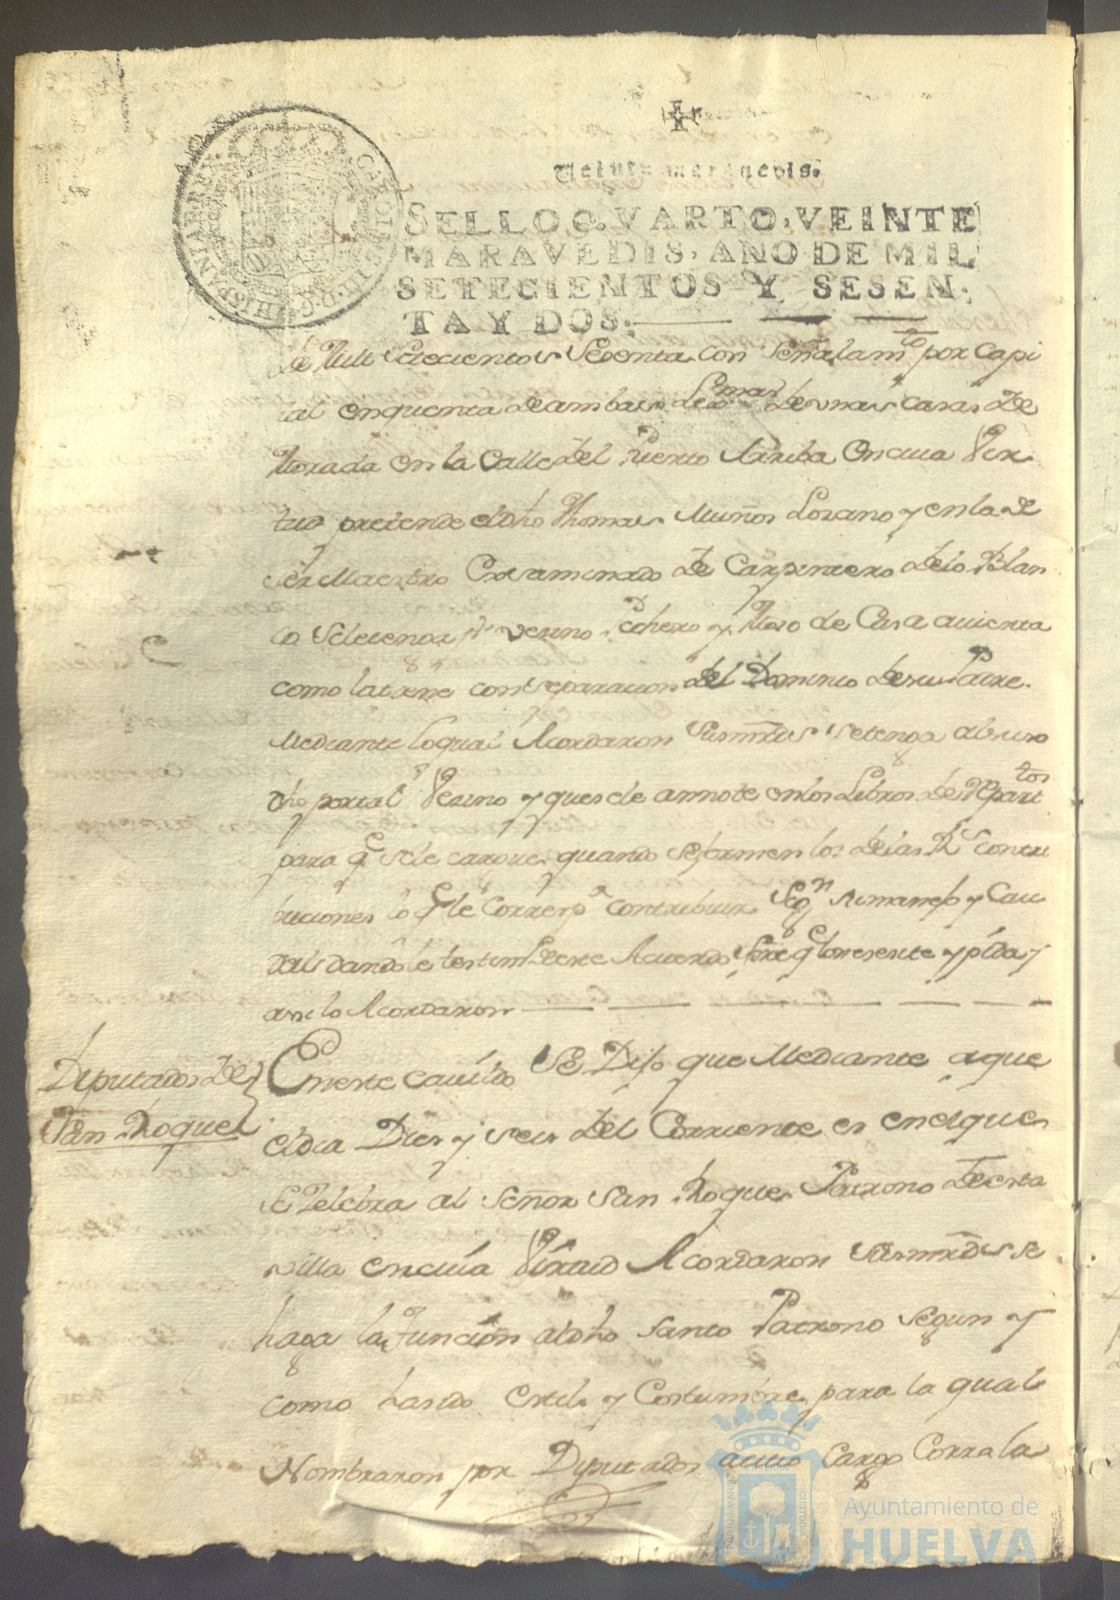 CAROLUS III D.G. HISPANIAR. REX
Veinte maravedis.
SELLO QVARTO, VEINTE
MARAVEDIS, AÑO DE MIL
SETECIENTOS Y SESEN-
TA Y DOS.
de Mill Setecientos Sesenta con señalam.to por Capi
tal enquenta de ambas de unas casas de
Morada en la Calle del Puerto Arriba en cuia Vir
tud pretende el dho Thomas Muños Lozano y en la de
ser Maestro Exsaminado de Carpintero de lo Blan
co se le tenga p.r Vesino Pechero y Moro de Casa auierta
como la tiene con separacion del Dominio de su Padre.
Mediante lo qual Acordaron Sus mrds se tenga al suso
dho por tal Vesino y que se le annote en los Libros de Repart.tos
para q.e se le cargue quando se formen los de las R.s Contri
buciones lo q.e le corresp.a contribuir Seg.n su manejo y Cau
dal dandole testim.o de este Acuerdo q.e lo presente y pida y
asi lo Acordaron
Diputados de
San Roque
En este cauildo Se Dijo que Mediante a que
el dia Dies y seis del Corriente es en el que
se Zelebra al Señor San Roque Patrono de esta
villa en cuia Virtud Acordaron Sus mrds se
haga la funcion al dho Santo Patrono segun y
como ha sido estilo y Costumbre para la qual
Nombraron por Diputados a cuio Cargo Corra la
Ayuntamiento de
HUELVA